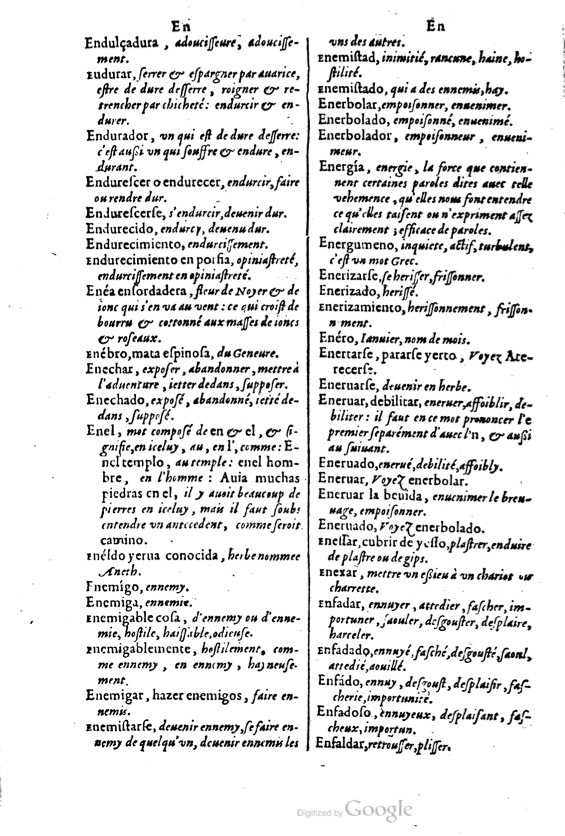 En
Endulçadura, adoucisseure, adoucisse-
ment.
Eudurar, serrer & espargner par auarice,
estre de dure desserre, roigner & re-
trencher par chicheté: endurcir & en-
durer.
Endurador, vn qui est de dure desserre:
c'est aussi vn qui souffre & endure, en-
durant.
Endurescer o endurecer, endurcir, faire
ou rendre dur.
Endurescerse, s'endurcir, deuenir dur.
Endurecido, endurcy, deuenu dur.
Endurecimiento, endurcissement.
Endurecimiento en porfia, opiniastreté,
endurcissement en opiniastreté.
Enéa ensordadera, fleur de Noyer & de
ionc qui s'en va au vent: ce qui croist de
bourru & cottonné aux masses de ioncs
& roseaux.
Enébro, mata espinosa, du Geneure.
Enechar, exposer, abandonner, mettre à
l'aduenture, ietter dedans, supposer.
Enechado, exposé, abandonné, ietté de-
dans, supposé.
Enel, mot composé de en & el, & si-
gnifie, en iceluy, au, en l', comme: E-
nel templo, au temple: enel hom-
bre, en l'homme: Auia muchas
piedras en el, il y auoit beaucoup de
pierres en iceluy, mais il faut soubs
entendre vn antecedent, comme seroit
camino.
Enéldo yerua conocida, herbe nommee
Aneth.
Enemígo, ennemy.
Enemiga, ennemie.
Enemigable cosa, d'ennemy ou d'enne-
mie, hostile, haissable, odieuse.
Enemigablemente, hostilement, com-
me ennemy, en ennemy, hayneuse-
ment.
Enemigar, hazer enemigos, faire en-
nemis.
Enemistarse, deuenir ennemy, se faire en-
nemy de quelqu'vn, deuenir ennemis les
En
vns des autres.
Enemistad, inimitié, rancune, haine, ho-
stilité.
Enemistado, qui a des ennemis, hay.
Enerbolar, empoisonner, enuenimer.
Enerbolado, empoisonné, enuenimé.
Enerbolador, empoisonneur, enueni-
meur.
Energía, energie, la force que contien-
nent certaines paroles dites auec telle
vehemence, qu'elles nous font entendre
ce qu'elles taisent ou n'expriment assez
clairement; efficace de paroles.
Energumeno, inquiete, actif, turbulent,
c'est vn mot Grec.
Enerizarse, se herisser, frissonner.
Enerizado, herissé.
Enerizamiento, herissonnement, frisson-
n ment.
Enéro, Ianuier, nom de mois.
Enertarse, pararse yerto, Voyez Ate-
recerse.
Eneruarse, deuenir en herbe.
Eneruar, debilitar, eneruer, affoiblir, de-
biliter: il faut en ce mot prononcer l'e
premier separément d'auec l'n, & aussi
au suiuant.
Eneruado, enerué, debilité, affoibly.
Eneruar, Voyez enerbolar.
Eneruar la beuida, enuenimer le breu-
uage, empoisonner.
Eneruado, Voyez enerbolado.
Enessar, cubrir de yesso, plastrer, enduire
de plastre ou de gips.
Enexar, mettre vn essieu à vn chariot ou
charrette.
Enfadar, ennuyer, attedier, fascher, im-
portuner, saouler, desgouster, desplaire,
harceler.
Enfadado, ennuyé, fasché, desgousté, saoul,
attedié, aouillé.
Enfádo, ennuy, desgoust, desplaisir, fas-
cherie, importunité.
Enfadoso, ennuyeux, desplaisant, fas-
cheux, importun.
Enfaldar, retrousser, plisser.
Digitized by Google